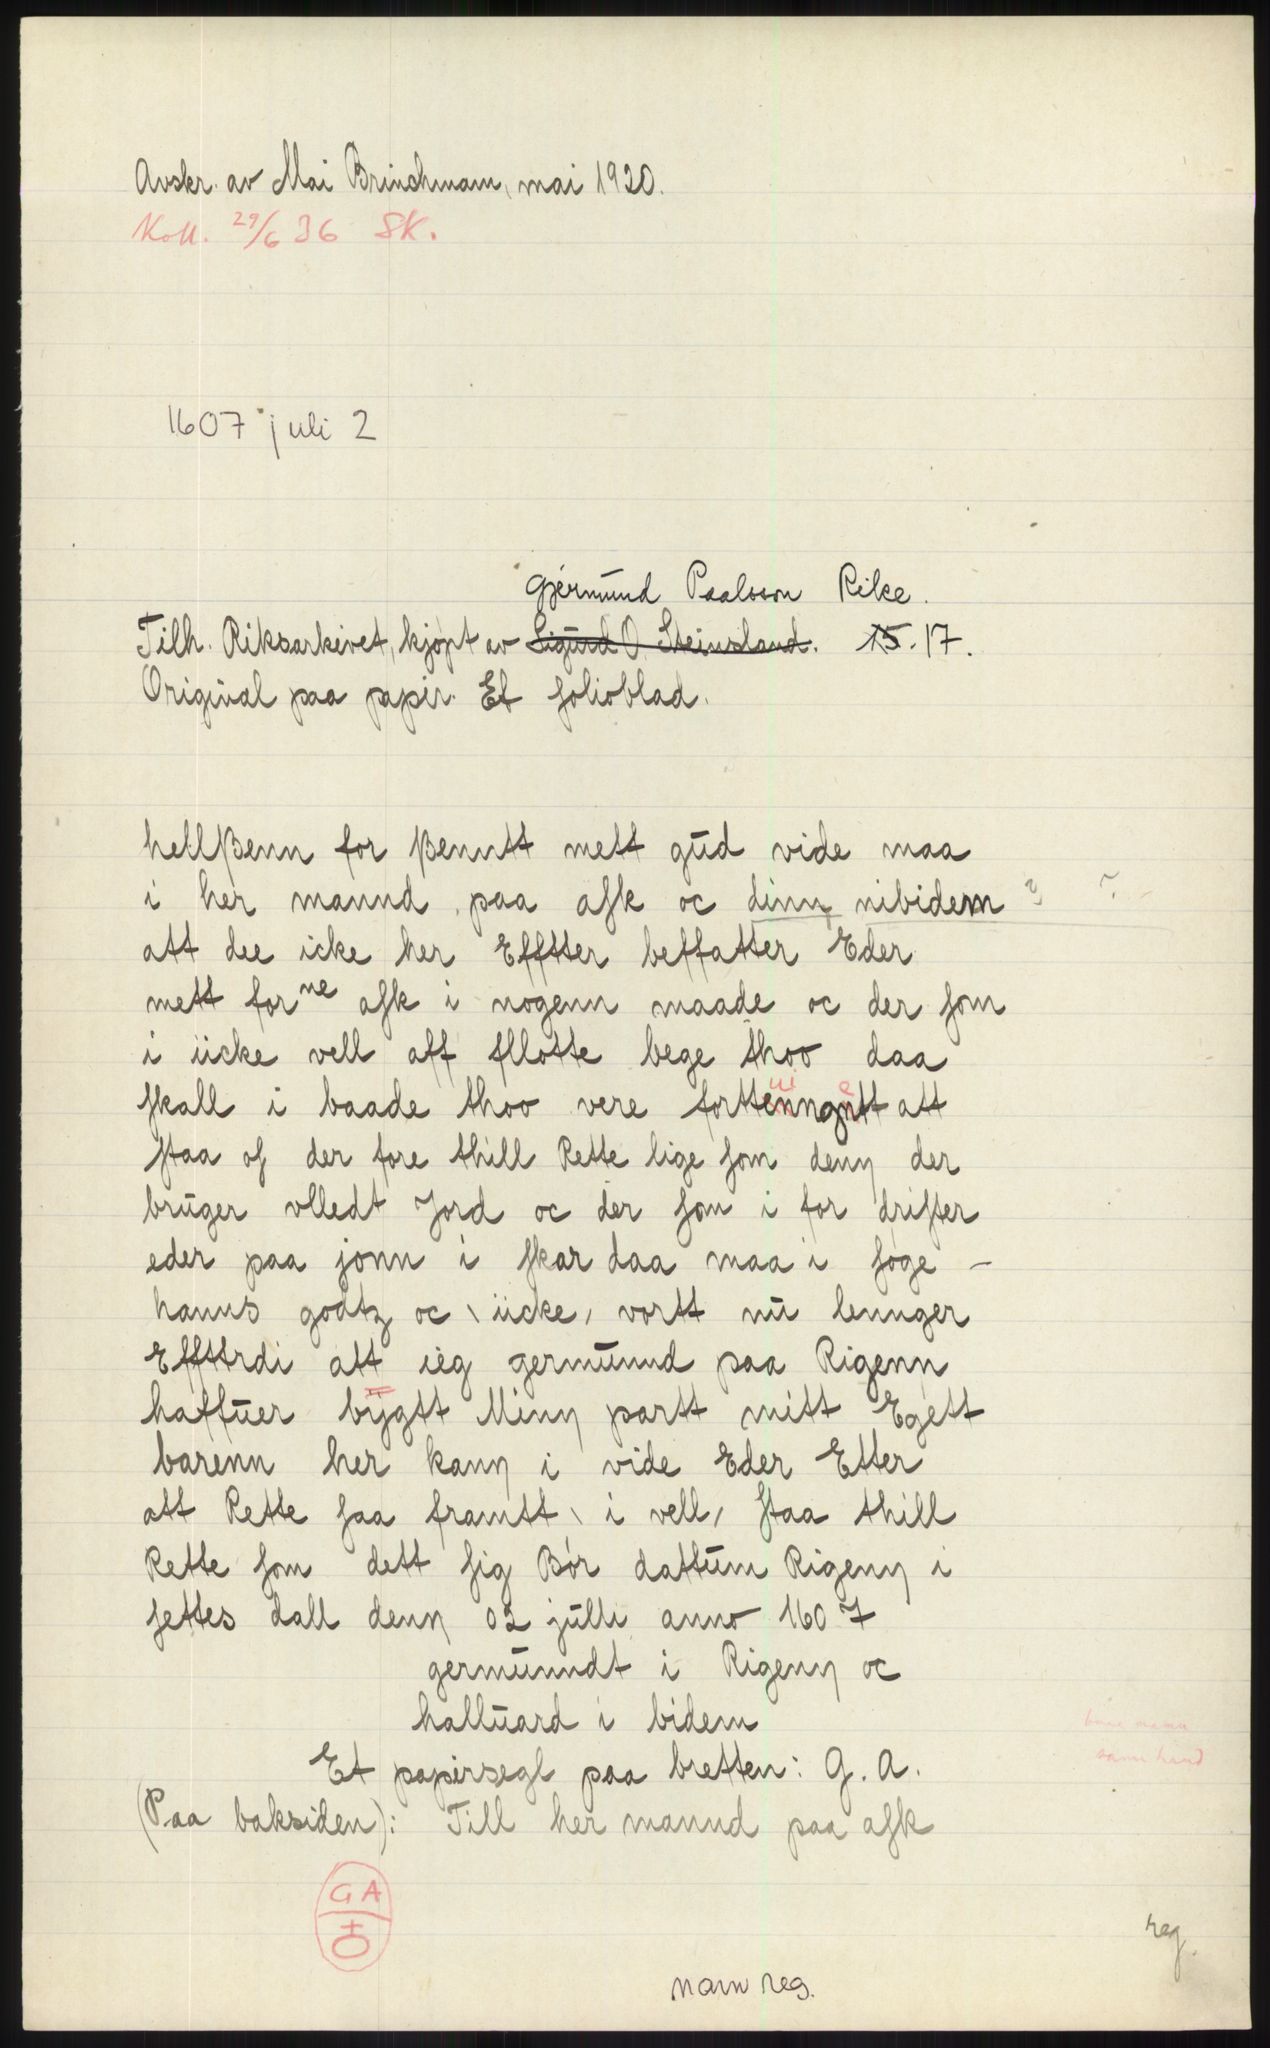 Avskr. av Mai Brinchmann, mai 1920.
Koll. 29/6 36 SK.
1607 juli 2
Gjermund Paalsson Rike.
Tilh. Riksarkivet, kjøpt av Sigurd O. Steinsland. 15. 17.
Original paa papir. Et folioblad.
hellßenn for ßenntt mett gud vide maa
i her mannd paa ask oc dinn nibidem ?
att dee icke her Efftter beffatter Eder
mett forne ask i nogenn maade oc der som
i iicke vell aff fllotte bege thoo daa
skall i baade thoo vere forttenngntt att
staa of der fore thill Rette lige som denn der
bruger vlledt Jord oc der som i for drister
eder paa jonn i skar daa maa i søge –
hanns godtz oc \ iicke / vortt nu lennger
Effttrdi att ieg germunnd paa Rigenn
haffuer bÿgtt Minn partt mitt Egett
barenn her kann i vide Eder Etter
att Rette saa framtt \ i vell / staa thill
Rette som dett sig Bør dattum Rigenn i
settes dall denn 02 julli anno 1607
germunndt i Rigenn oc
halluard i bidem
Et papirsegl paa bretten: G. A.
samme hand
(Paa baksiden): Till her mannd paa ask
GA
reg.
navn reg.